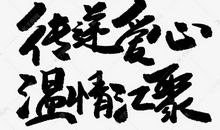 传递爱心
温情汇聚